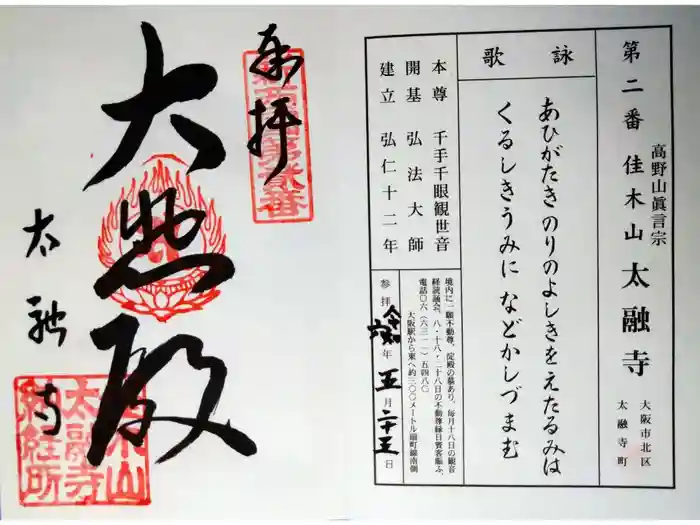 第二番 佳木山 太融寺
高野山眞言宗
大阪市北区
太融寺町
詠歌
あひがたき のりのよしきを えたるみは
くるしきうみに などかしづまむ
本尊 千手千眼観世音
開基 弘法大師
建立 弘仁十二年
境内に一願不動尊、淀殿の墓あり、毎月十八日の観音
経読誦会、八・十八・二十八日の不動尊縁日賽客賑ふ、
電話〇六(六三一一)五四八〇
大阪駅から東へ約三〇〇メートル扇町線南側
参拝 令和 年 五月二十五日
奉拝
新西国第弐番
大悲殿
太融寺
佳木山
太融寺
納経所